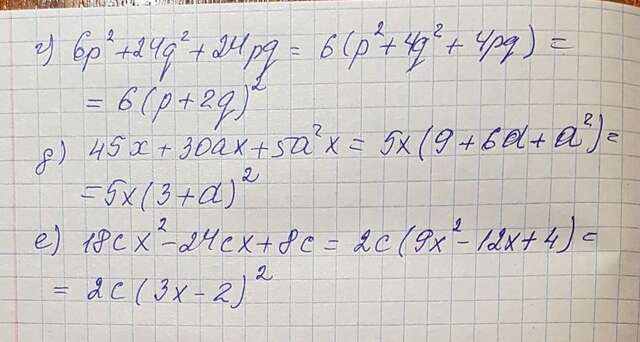 г) 6p²+24q²+24pq = 6(p²+4q²+4pq) =
= 6(p+2q)²
д) 45x+30ax+5a²x = 5x(9+6a+a²)=
=5x(3+a)²
е) 18cx²-24cx+8c = 2c(9x²-12x+4)=
= 2c(3x-2)²